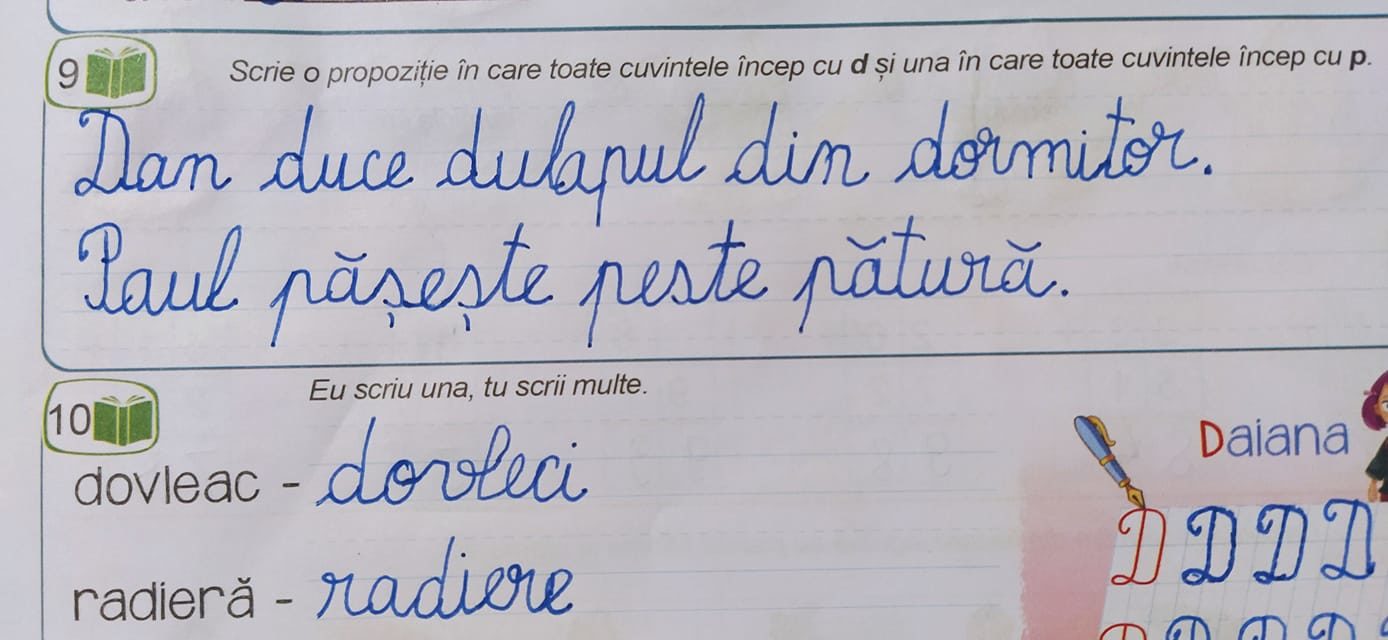 9 Scrie o propoziție în care toate cuvintele încep cu d și una în care toate cuvintele încep cu p.
Dan duce dulapul din dormitor.
Paul pășește peste pătură.
10 Eu scriu una, tu scrii multe.
dovleac - dovleci
Daiana
D D D D
radieră - radiere
D D D D